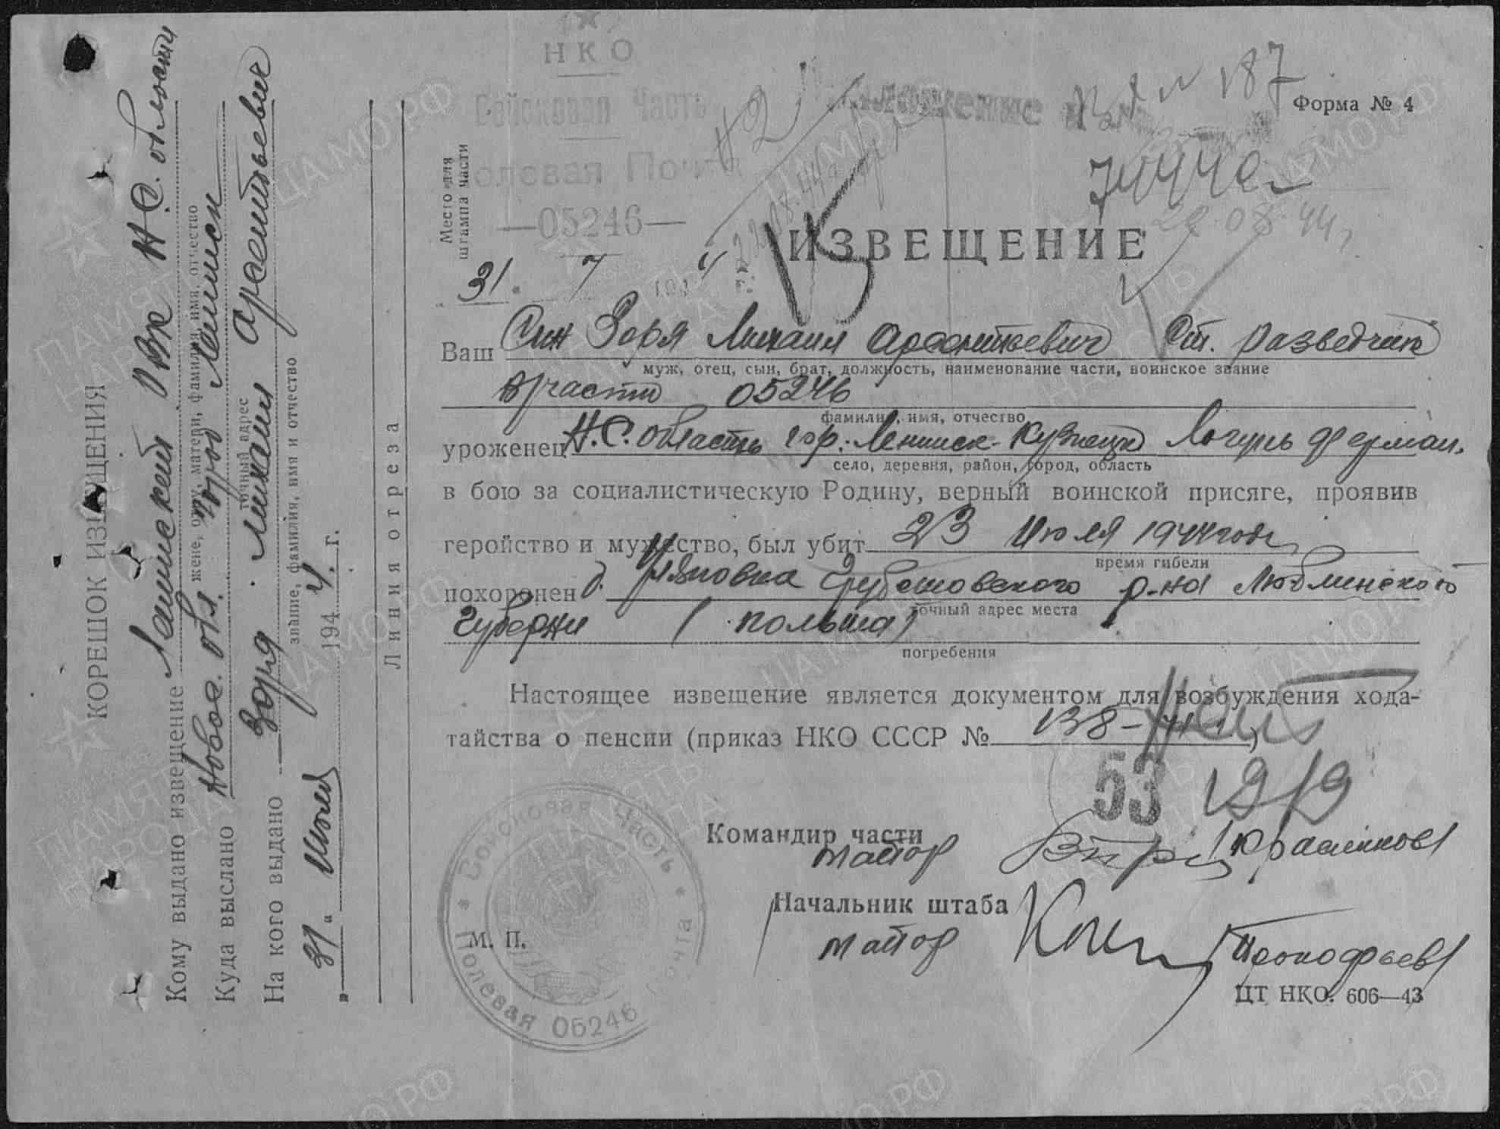 НКО
Войсковая Часть
Полевая Почта
—05246—
Место для
штампа части
Приложение
187
Форма № 4
31. 7 1944 г.
22.08.44
ИЗВЕЩЕНИЕ
Ваш Сын Зоря Михаил Арсентьевич Ст. разведчик
муж, отец, сын, брат, должность, наименование части, воинское звание
в/части 05246
фамилия, имя, отчество
уроженец Н.С. область гор. Ленинск-Кузнецк
село, деревня, район, город, область
в бою за социалистическую Родину, верный воинской присяге, проявив
геройство и мужество, был убит 23 Июля 1944 года
время гибели
похоронен д. Грубешовского р-на Люблинской
точный адрес места
Губерни (Польша)
погребения
Настоящее извещение является документом для возбуждения хода-
тайства о пенсии (приказ НКО СССР № 138-41 г.)
53
1919
Командир части
майор Красников
Начальник штаба
майор Прокофьев
М. П.
ЦТ НКО. 606—43
* Войсковая Часть * Полевая Почта 05246
Линия отреза
КОРЕШОК ИЗВЕЩЕНИЯ
Кому выдано извещение РВК Н.С. области
жене, отцу, матери, фамилия, имя, отчество
Куда выслано Новос. обл. Ленинск
точный адрес
На кого выдано Зоря Михаил Арсентьевич
звание, фамилия, имя и отчество
„31“ Июля 1944 г.
ПАМЯТЬ НАРОДА
ЦАМО.РФ